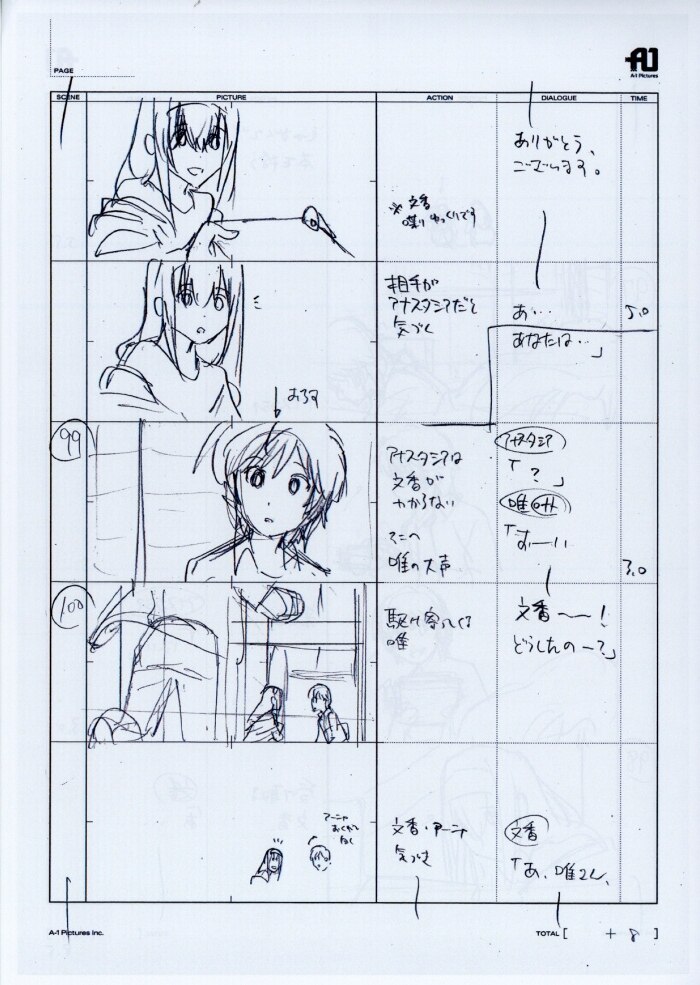 PAGE
A-1 Pictures
SCENE
PICTURE
ACTION
DIALOGUE
TIME
ありがとう、
ございます。
※文香
喋りゆっくりです
相手が
アナスタシアだと
気づく
あ…
5.0
あなたは…」
おろす
99
アナスタシアは
文香が
わからない
そこへ
唯の大声
アナスタシア
「?」
唯
「おーい
3.0
100
駆け寄ってくる
唯
文香〜〜!
どうしたのー?」
アーニャ
おくれて
文香・アーニャ
気づき
文香
「あ、唯さん、
A-1 Pictures Inc.
TOTAL [ + 8 ]